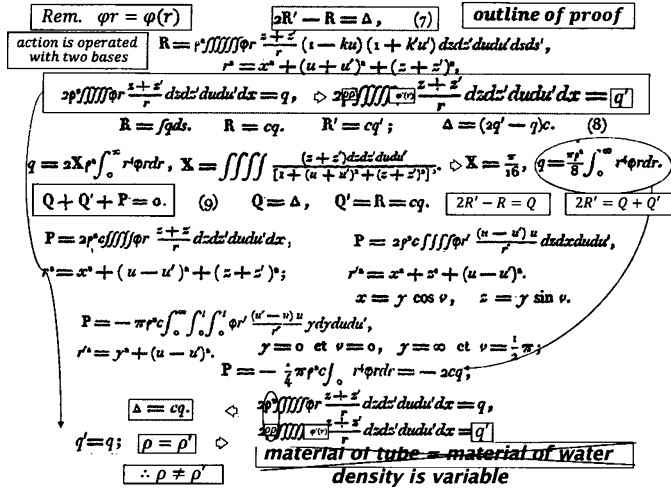 Rem. φr = φ(r)
2R' − R = Δ, (7)
outline of proof
action is operated with two bases
R = ρ²∫∫∫∫∫∫φr (z + z')/r (1 − ku) (1 + k'u') dzdz'dudu'dsds',
r² = x² + (u + u')² + (z + z')²,
2ρ²∫∫∫∫∫φr (z + z')/r dzdz'dudu'dx = q, ▷ 2ρρ'∫∫∫∫∫φ'(r) (z + z')/r dzdz'dudu'dx = q'
R = ∫qds. R = cq. R' = cq'; Δ = (2q' − q)c. (8)
q = 2Xρ²∫₀^∞ r⁴φrdr, X = ∫∫∫∫ (z + z')dzdz'dudu' / [1 + (u + u')² + (z + z')²] ▷ X = π/16, q = πρ²/8 ∫₀^∞ r⁴φrdr.
Q + Q' + P = 0. (9) Q = Δ, Q' = R = cq. 2R' − R = Q 2R' = Q + Q'
P = 2ρ²c∫∫∫∫∫φr (z + z)/r dzdz'dudu'dx, P = 2ρ²c∫∫∫∫φr' (u − u')u/r' dzdxdudu',
r² = x² + (u − u')² + (z + z')²; r'² = x² + z² + (u − u')².
x = y cos ν, z = y sin ν.
P = − πρ²c∫₀^∞∫₀^l∫₀^l φr' (u' − u)u/r' ydydudu',
r'² = y² + (u − u')². y = 0 et ν = 0, y = ∞ et ν = ½π;
P = − ¼πρ²c∫₀ r⁴φrdr = − 2cq;
Δ = cq. ◁ 2ρ²∫∫∫∫∫φr (z + z')/r dzdz'dudu'dx = q,
q' = q; ρ = ρ' ▷ 2ρρ'∫∫∫∫ φ'(r) (z + z')/r dzdz'dudu'dx = q'
∴ ρ ≠ ρ' material of tube = material of water
density is variable